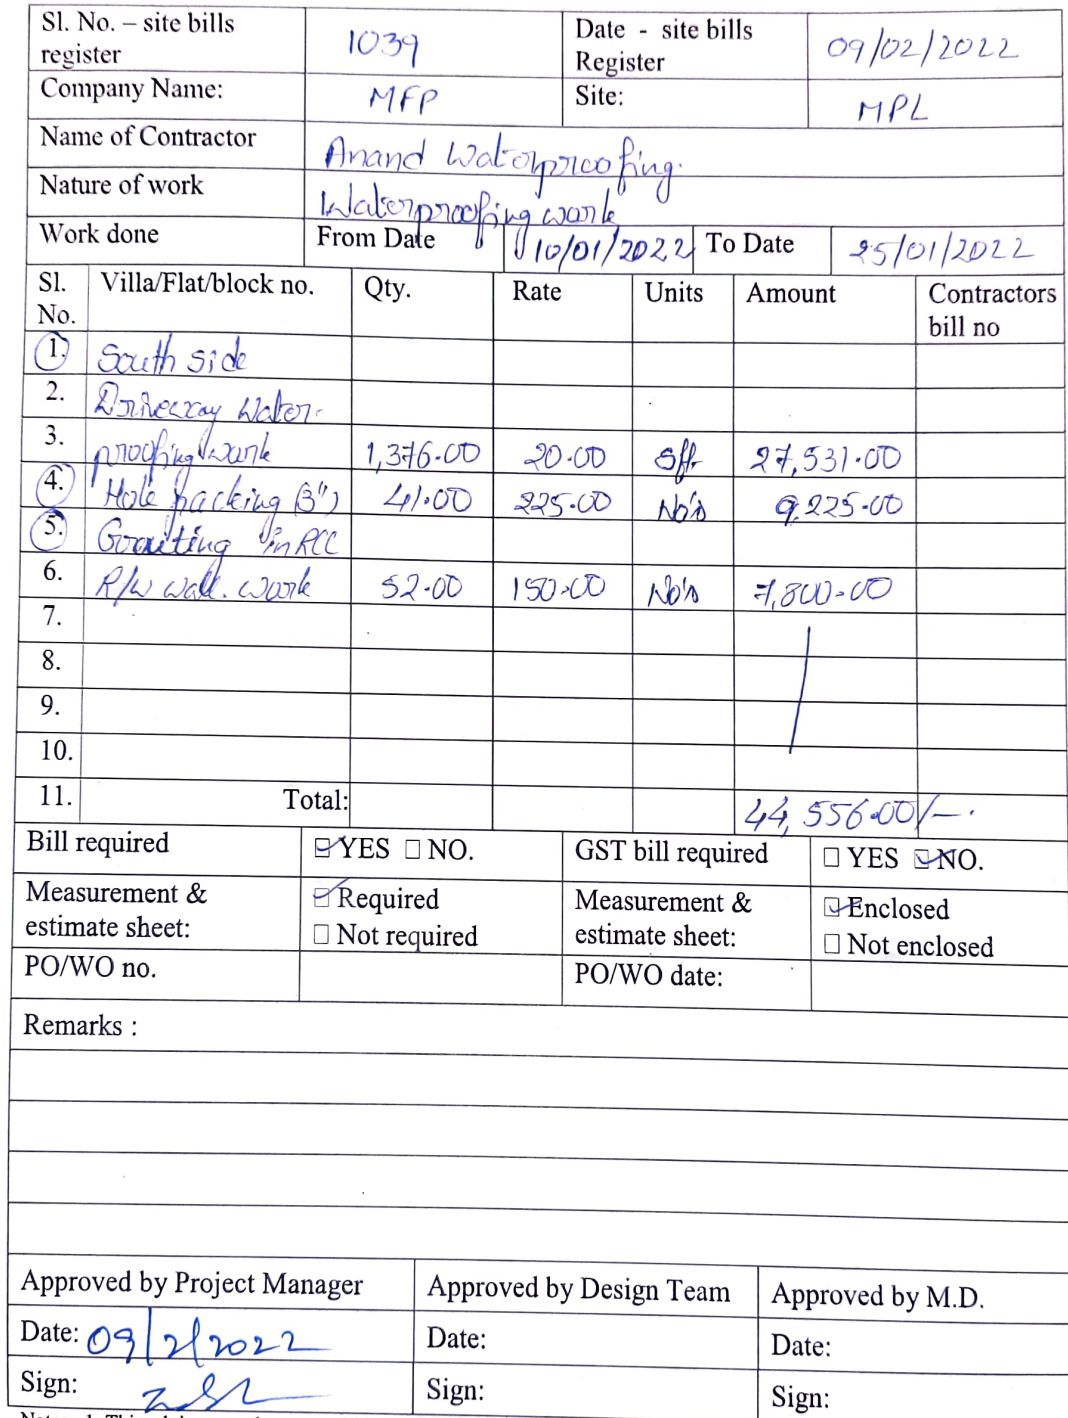 Sl. No. – site bills register 1039 Date - site bills Register 09/02/2022
Company Name: MFP Site: MPL
Name of Contractor Anand Waterproofing.
Nature of work Waterproofing work
Work done From Date 10/01/2022 To Date 25/01/2022
Sl. No. Villa/Flat/block no. Qty. Rate Units Amount Contractors bill no
1. South side
2. Driveway Water-
3. proofing work 1,376.00 20.00 sft. 27,531.00
4. Hole packing (3") 41.00 225.00 No's 9,225.00
5. Grouting in RCC
6. R/W wall. work 52.00 150.00 No's 7,800.00
7.
8.
9.
10.
11. Total: 44,556.00/-.
Bill required YES NO. GST bill required YES NO.
Measurement & estimate sheet: Required Not required Measurement & estimate sheet: Enclosed Not enclosed
PO/WO no. PO/WO date:
Remarks :
Approved by Project Manager Approved by Design Team Approved by M.D.
Date: 09/2/2022 Date: Date:
Sign: Sign: Sign: